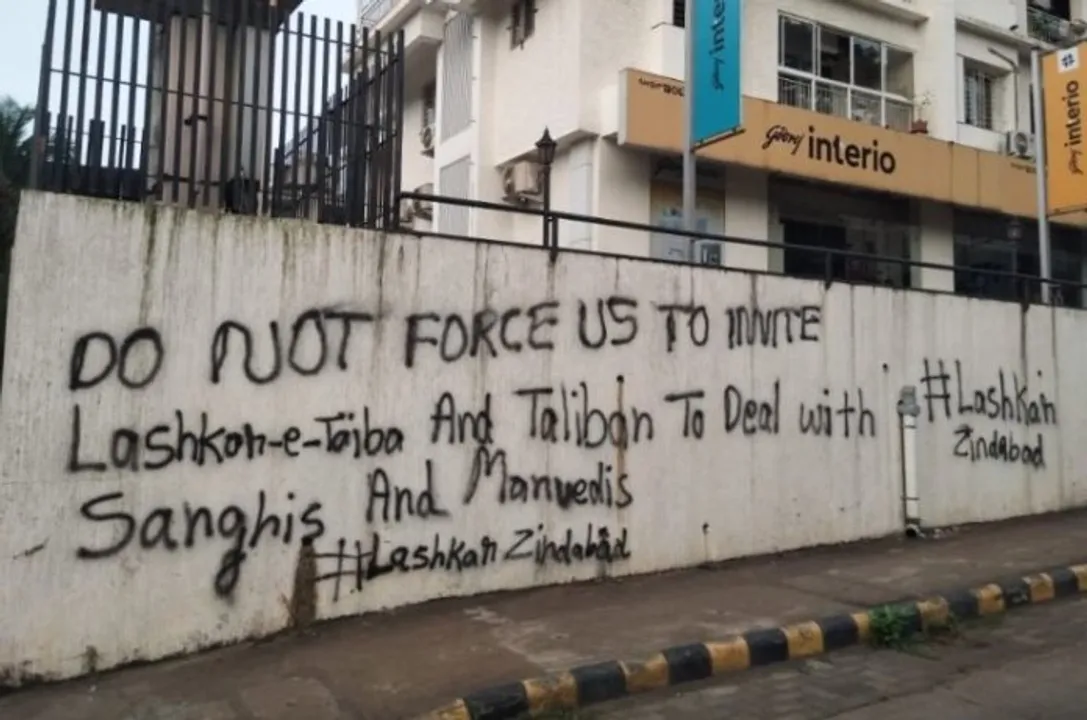 DO NOT FORCE US TO INVITE
Lashkar-e-Taiba And Taliban To Deal with
Sanghis And Manvedis
#Lashkar Zindabad
#Lashkar
Zindabad
Godrej interio
interio